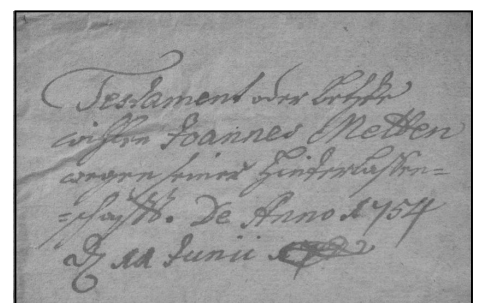 Testament oder letzte
willen Joannes Metten
wegen seiner Hinterlassen=
=schafft. De Anno 1754
11 Junii